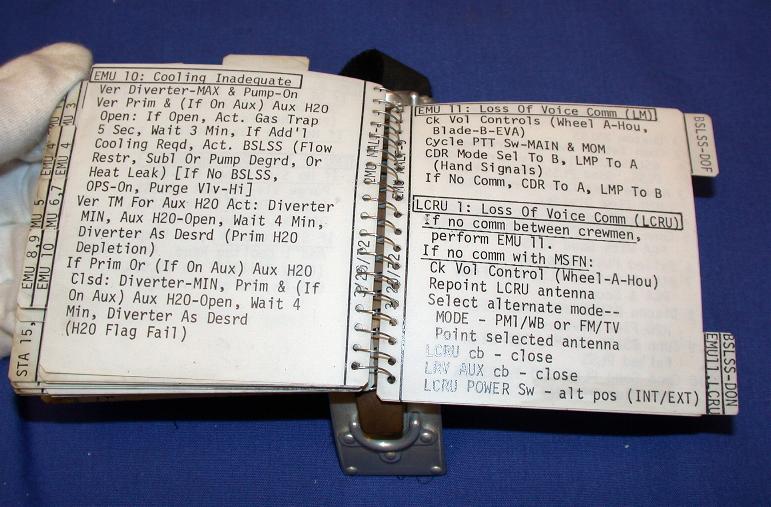 EMU 10: Cooling Inadequate
Ver Diverter-MAX & Pump-On
Ver Prim & (If On Aux) Aux H2O
Open: If Open, Act. Gas Trap
5 Sec, Wait 3 Min, If Add'l
Cooling Reqd, Act. BSLSS (Flow
Restr, Subl Or Pump Degrd, Or
Heat Leak) [If No BSLSS,
OPS-On, Purge Vlv-Hi]
Ver TM For Aux H2O Act: Diverter
MIN, Aux H2O-Open, Wait 4 Min,
Diverter As Desrd (Prim H2O
Depletion)
If Prim Or (If On Aux) Aux H2O
Clsd: Diverter-MIN, Prim & (If
On Aux) Aux H2O-Open, Wait 4
Min, Diverter As Desrd
(H2O Flag Fail)
EMU 3
EMU 4
EMU 4
EMU 5
EMU 6,7
EMU 8,9
EMU 10
STA 15,
EMU MALF-
EMU 11: Loss Of Voice Comm (LM)
Ck Vol Controls (Wheel A-Hou,
Blade-B-EVA)
Cycle PTT Sw-MAIN & MOM
CDR Mode Sel To B, LMP To A
(Hand Signals)
If No Comm, CDR To A, LMP To B
LCRU 1: Loss Of Voice Comm (LCRU)
If no comm between crewmen,
perform EMU 11.
If no comm with MSFN:
Ck Vol Control (Wheel-A-Hou)
Repoint LCRU antenna
Select alternate mode--
MODE - PM1/WB or FM/TV
Point selected antenna
LCRU cb - close
LRV AUX cb - close
LCRU POWER Sw - alt pos (INT/EXT)
BSLSS-DOF
BSLSS-DON
EMU11,LCRU